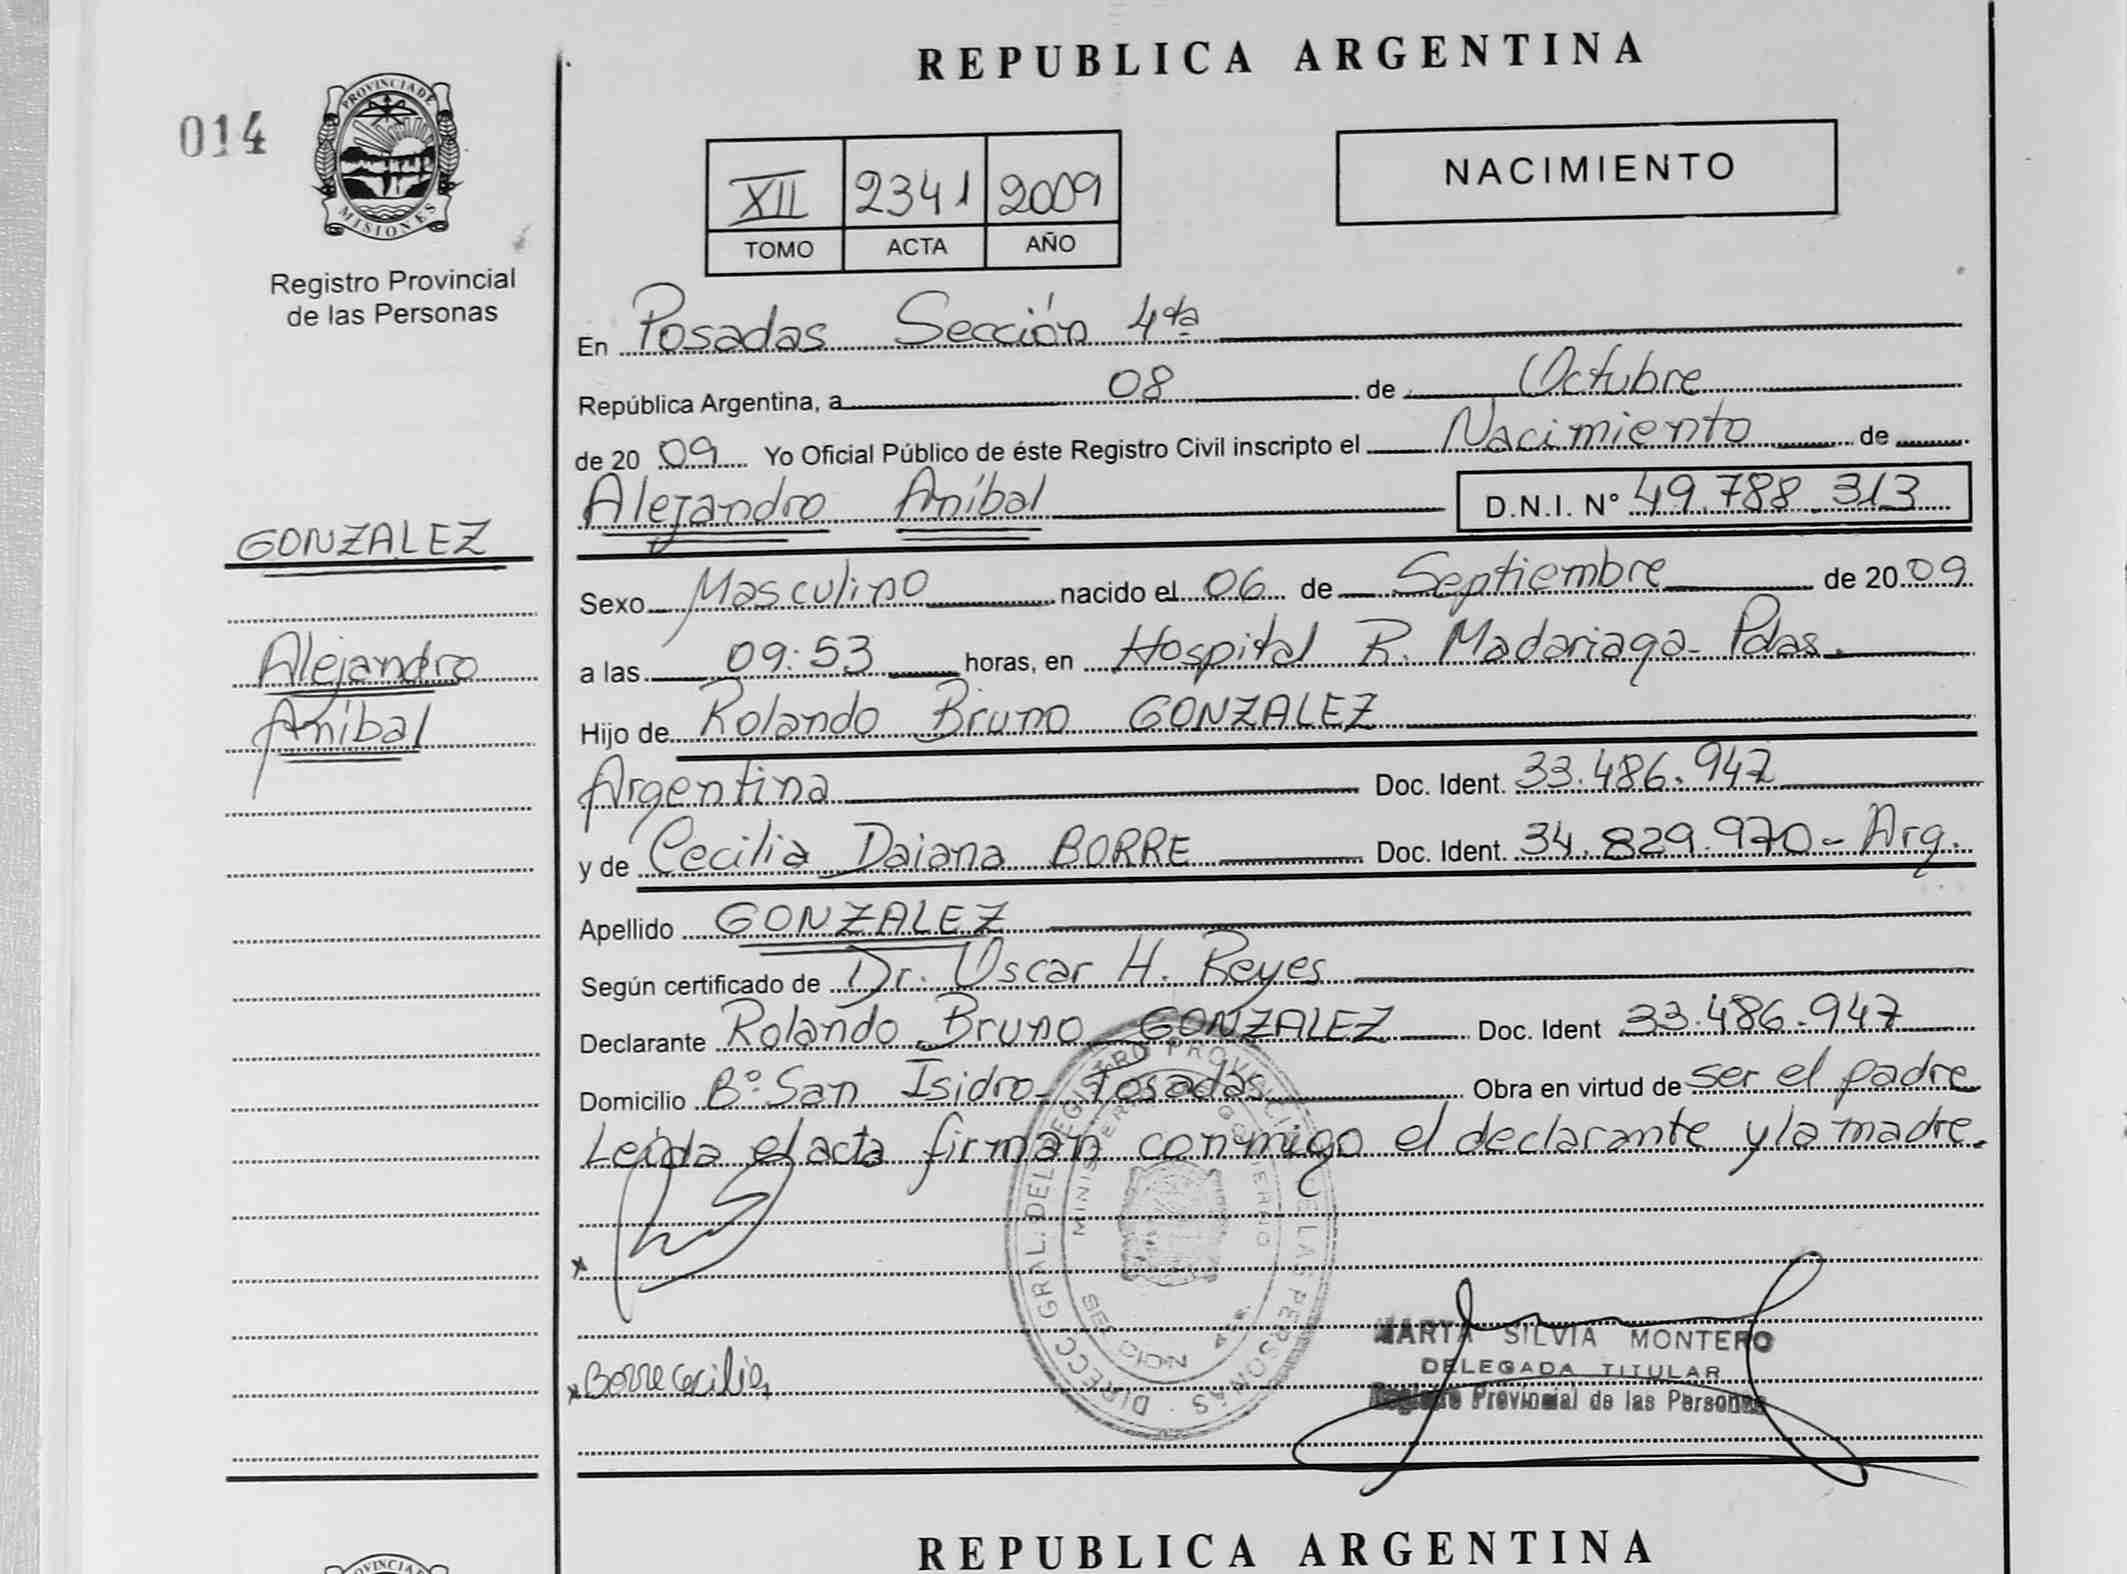 REPUBLICA ARGENTINA
014
PROVINCIA DE
MISIONES
Registro Provincial
de las Personas
XII 2341 2009
TOMO ACTA AÑO
NACIMIENTO
En Posadas Sección 4ta
República Argentina, a 08 de Octubre
de 2009 Yo Oficial Público de éste Registro Civil inscripto el Nacimiento de
Alejandro Aníbal D.N.I. Nº 49.788.313
GONZALEZ
Alejandro
Aníbal
Sexo Masculino nacido el 06 de Septiembre de 2009
a las 09:53 horas, en Hospital R. Madariaga- Pdas.
Hijo de Rolando Bruno GONZALEZ
Argentina Doc. Ident. 33.486.947
y de Cecilia Daiana BORRE Doc. Ident. 34.829.970- Arg.
Apellido GONZALEZ
Según certificado de Dr. Oscar H. Reyes
Declarante Rolando Bruno GONZALEZ Doc. Ident 33.486.947
Domicilio Bº San Isidro- Posadas Obra en virtud de ser el padre
Leída el acta firman conmigo el declarante y la madre.
x
x Borre Cecilia
DIRECC GRAL. DEL REGISTRO PROVINCIAL DE LAS PERSONAS
MARTA SILVIA MONTERO
DELEGADA TITULAR
Registro Provincial de las Personas
REPUBLICA ARGENTINA
PROVINCIA